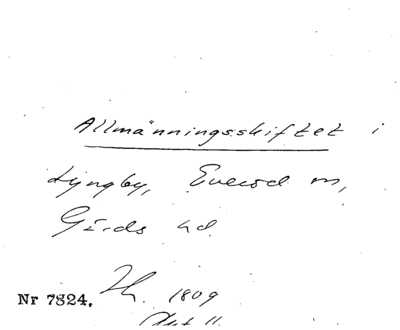 Allmänningsskiftet i
Ljungby, Everöd m,
Gärds hd.
Nr 7824. 1809